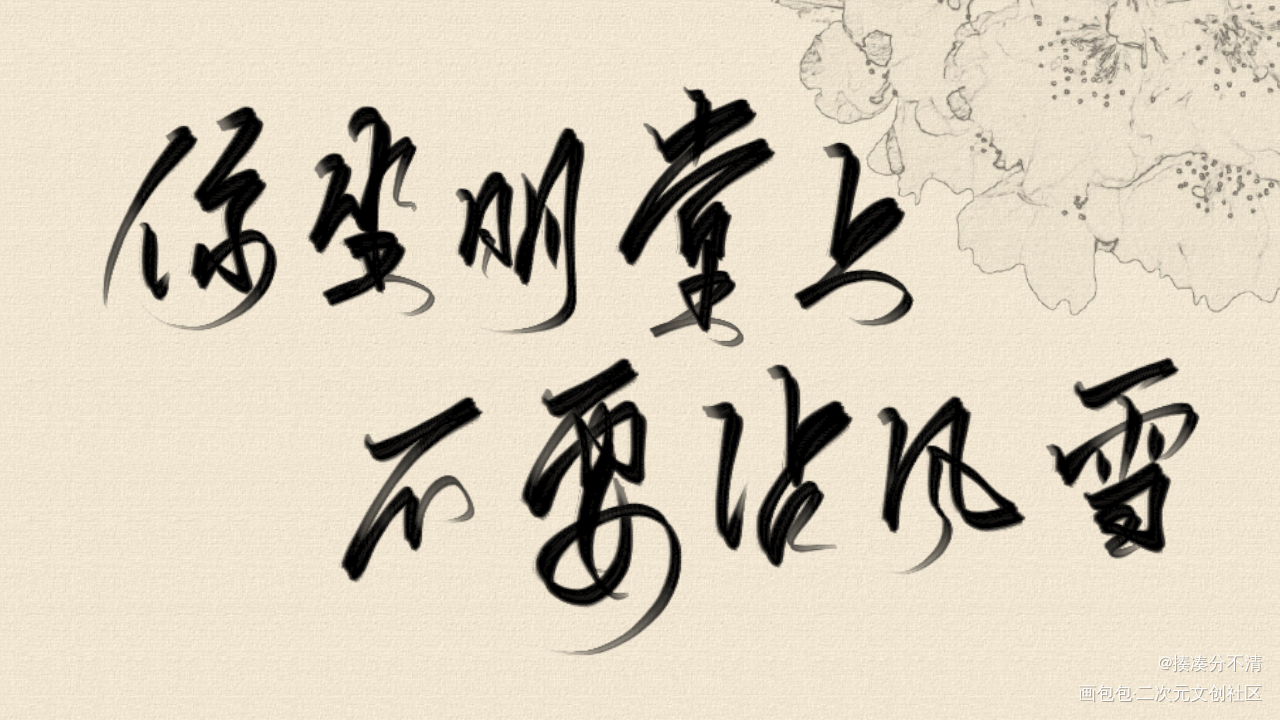 你坐明堂上
不要沾风雪
@揍凑分不清
画包包·二次元文创社区